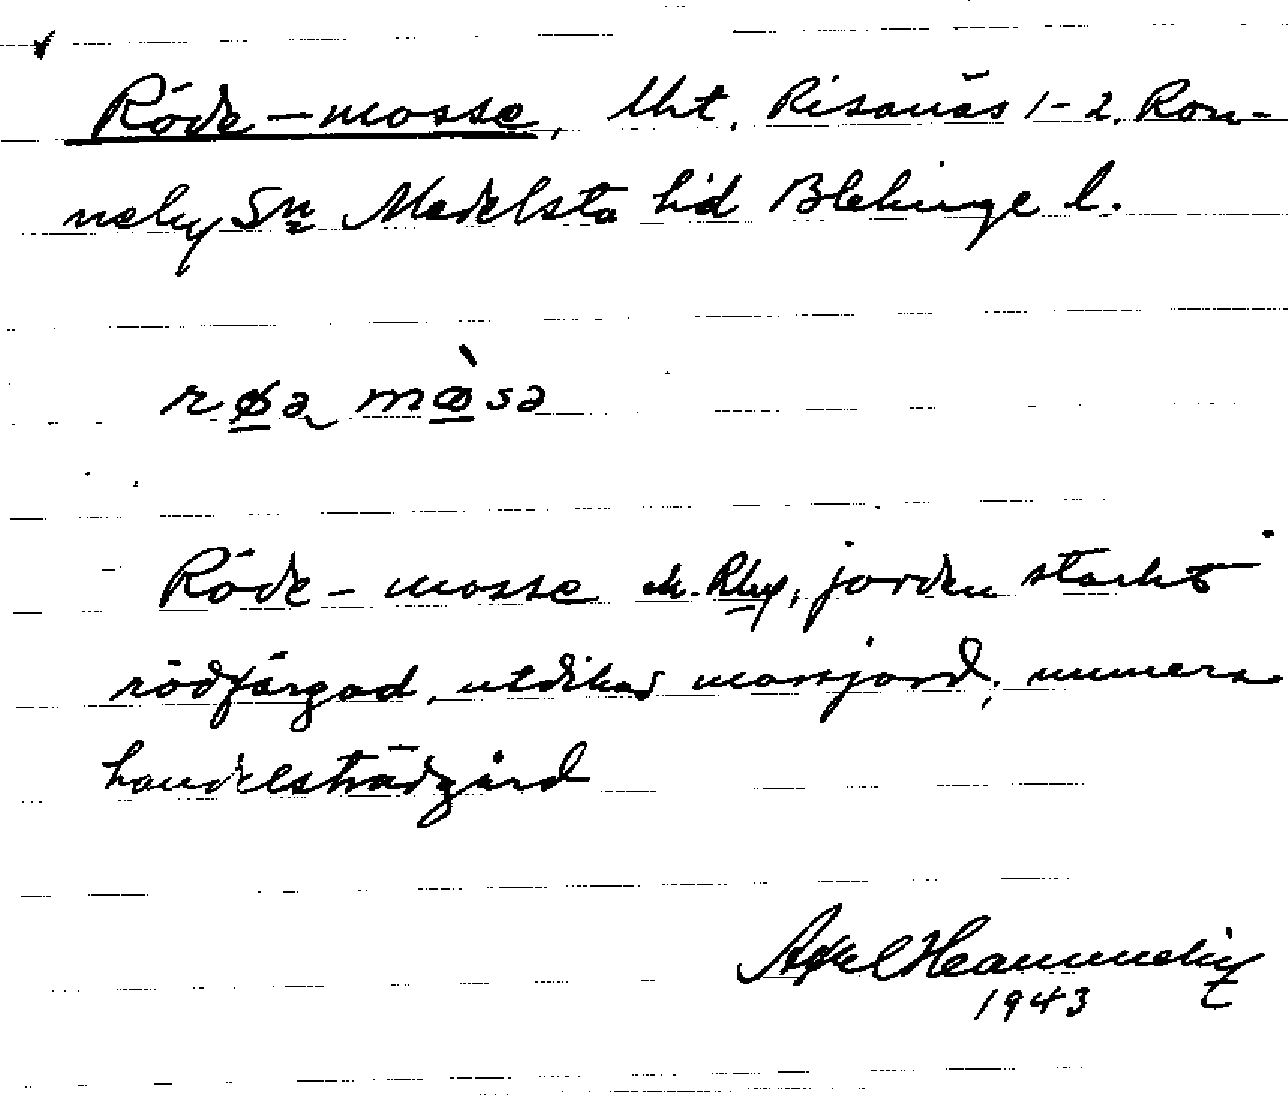 Röde-mosse, Uht. Risanäs 1-2. Ron-
neby Sn Medelsta hd Blekinge l.
røa mòsa
Röde-mosse, jorden starkt
rödfärgad, utdikad mossjord, numera
handelsträdgård
Axel
1943